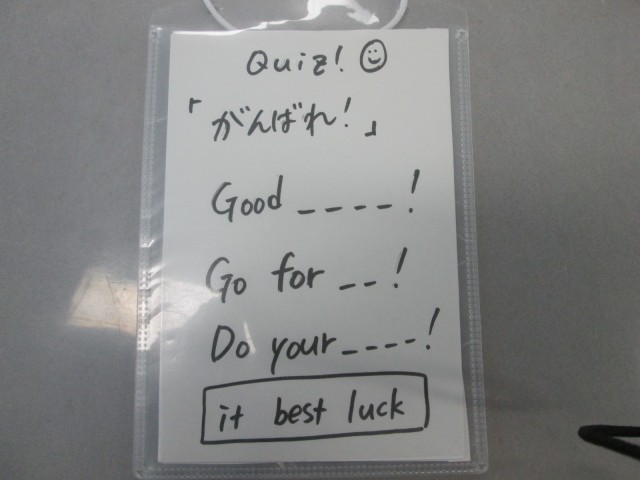 Quiz! ☺
「がんばれ！」
Good _ _ _ _ !
Go for _ _ !
Do your _ _ _ _ !
it best luck